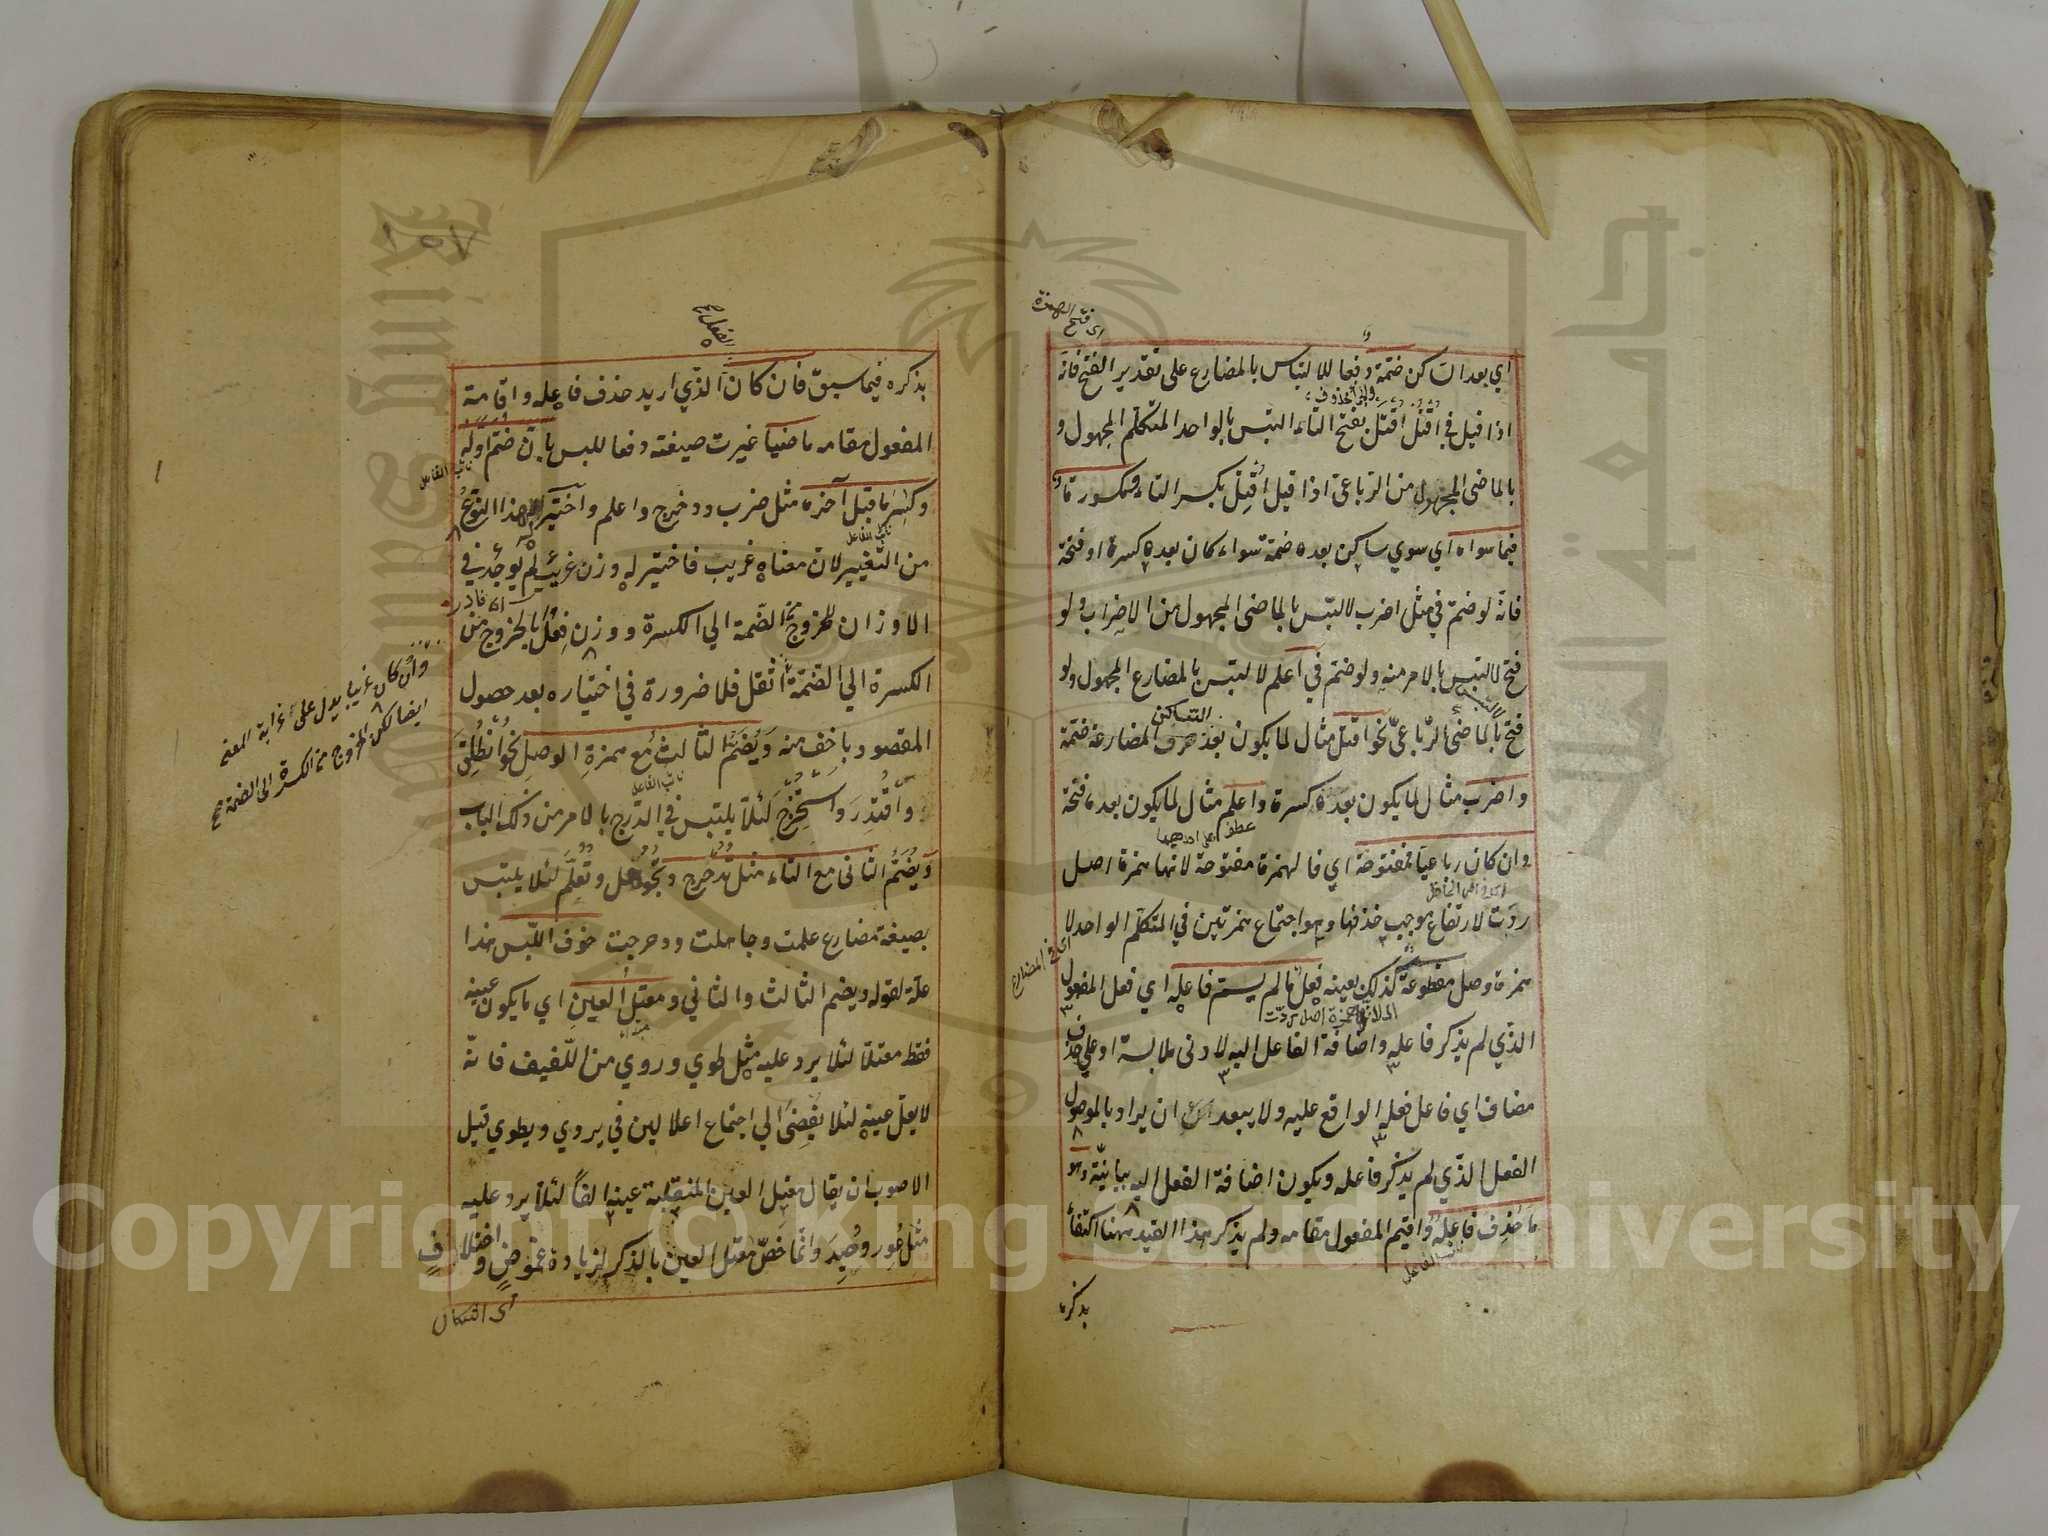 اي بعد الساكن ضمة دفعا للالتباس بالمضارع على تقدير الفتح فانه
اذا قيل في اُقتُل اَقتُل بفتح التاء التبس بالواحد المتكلم المجهول و
بالماضي المجهول من الرباعي اذا قيل اُقتِل بكسر التاء ومكسورة
فيما سواه اي سوي ساكن بعده ضمة سواء كان بعده كسرة او فتحة
فانه لو ضم في مثل اضرب لالتبس بالماضي المجهول من الاضراب ولو
فتح لالتبس بالامر منه ولو ضم في اعلم لالتبس بالمضارع المجهول ولو
فتح بالماضي الرباعي نحو اقتل مثال لما يكون بعد حرف المضارعة ضمة
واضرب مثال لما يكون بعده كسرة واعلم مثال لما يكون بعده فتحة
وان كان رباعيا فمفتوحة اي فالهمزة مفتوحة لانها همزة اصل
ردت لارتفاع موجب حذفها وهو اجتماع همزتين في المتكلم الواحد لا
همزة وصل مقطوعة كذلك بعينه فعل ما لم يسم فاعله اي فعل المفعول
الذي لم يذكر فاعله واضافة الفاعل اليه لادنى ملابسة او على حذف
مضاف اي فاعل فعله الواقع عليه ولا يبعد ان يراد بالموصول
الفعل الذي لم يذكر فاعله ويكون اضافة الفعل اليه بيانية وهو
ما حذف فاعله واقيم المفعول مقامه ولم يذكر هذا القيد ههنا اكتفاء
بذكره
اي فتح الهمزة
الساكن
اي في المضارع
نائب الفاعل
١٥٧
الفعل
بذكره فيما سبق فان كان الذي اريد حذف فاعله واقامة
المفعول مقامه ماضيا غيرت صيغته دفعا للبس بان ضم اوله
وكسر ما قبل آخره مثل ضرب ودحرج واعلم واختير هذا النوع
من التغيير لان معناه غريب فاختير له وزن غريب لم يوجد في
الاوزان لخروج الضمة الي الكسرة ووزن فعل بالخروج من
الكسرة الي الضمة اثقل فلا ضرورة في اختياره بعد حصول
المقصود باخف منه ويضم الثالث مع همزة الوصل نحو انطلق
واقتدر واستخرج لئلا يلتبس في الدرج بالامر من ذلك الباب
ويضم الثاني مع التاء مثل تدحرج وتجوهل وتعلم لئلا يلتبس
بصيغة مضارع علمت وجاهلت ودحرجت خوف اللبس هذا
علة لقوله ويضم الثالث والثاني ومعتل العين اي ما يكون عينه
فقط معتلا لئلا يرد عليه مثل طوي وروي من اللفيف فانه
لا يعل عينه لئلا يفضي الي اجتماع اعلالين في يروي ويطوي قيل
الاصوب ان يقال معتل العين المنقلبة عينه الفا لئلا يرد عليه
مثل عور وصيد وانما خص معتل العين بالذكر لزيادة غموض واختلاف
نائب الفاعل
نائب الفاعل
اي نادر
وان كان غريبا يدل على غرابة المعنى
ايضا لكن الخروج من الكسرة الى الضمة